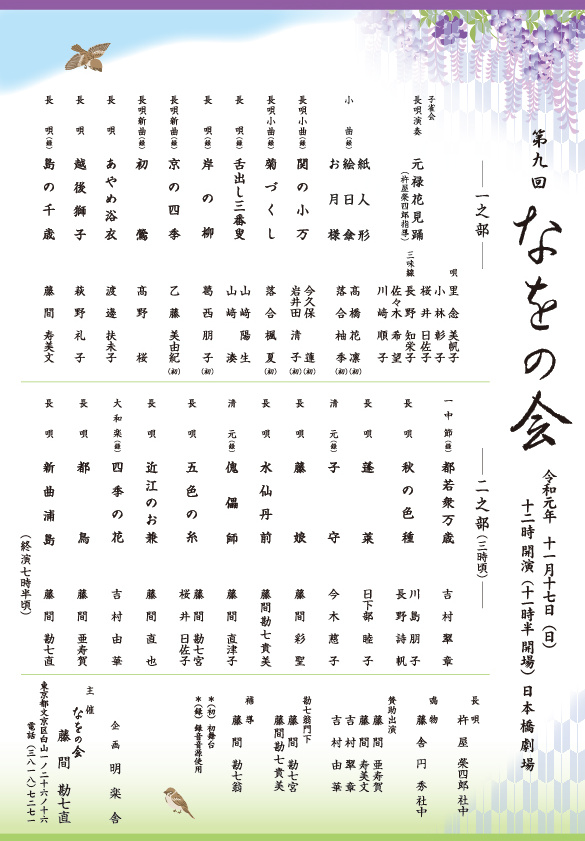 第九回
なをの会
令和元年 十一月十七日（日）
十二時開演（十一時半開場）日本橋劇場
一之部
子雀会
長唄演奏 元禄花見踊
（杵屋榮四郎指導）
唄 里 念 美帆子
小林 彰子
桜井 日佐子
三味線 長野 知栄子
佐々木 希望
川崎 順子
小曲（録） 紙人形 髙橋 花凛（初）
絵日傘 落合 柚季（初）
お月様
長唄小曲（録） 関の小万 今久保 蓮（初）
岩井田 清子（初）
長唄小曲（録） 菊づくし 落合 楓夏（初）
長唄（録） 舌出し三番叟 山﨑 陽生
山﨑 湊
長唄（録） 岸の柳 葛西 朋子（初）
長唄新曲（録） 京の四季 乙藤 美由紀（初）
長唄新曲（録） 初鶯 髙野 桜
長唄 あやめ浴衣 渡邊 扶未子
長唄 越後獅子 萩野 礼子
長唄（録） 島の千歳 藤間 寿美文
二之部（三時頃）
一中節（録） 都若衆万歳 吉村 翠章
長唄 秋の色種 川島 朋子
長野 詩帆
長唄 蓬莱 日下部 睦子
清元（録） 子守 今木 慈子
長唄 藤娘 藤間 彩聖
長唄 水仙丹前 藤間 勘七貴美
清元（録） 傀儡師 藤間 直津子
長唄 五色の糸 藤間 勘七宮
桜井 日佐子
長唄 近江のお兼 藤間 直也
大和楽（録） 四季の花 吉村 由華
長唄 都鳥 藤間 亜寿賀
長唄 新曲浦島 藤間 勘七直
（終演七時半頃）
長唄 杵屋 榮四郎 社中
鳴物 藤舎 円秀 社中
賛助出演
藤間 亜寿賀
藤間 寿美文
吉村 翠章
吉村 由華
勘七翁門下
藤間 勘七宮
藤間 勘七貴美
補導 藤間 勘七翁
＊（初）初舞台
＊（録）録音音源使用
企画 明楽舎
主催 なをの会
藤間 勘七直
東京都文京区白山一ノ二十六ノ十六
電話（三八一八）七二七一